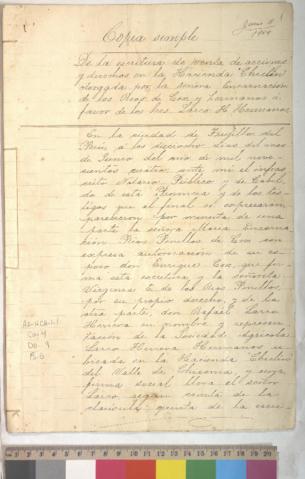 Junio 18
1904
Copia simple
De la escritura de venta de acciones
y derechos en la Hacienda "Chiclin"
otorgada por la Señora Encarnacion
de los Rios de Cox y hermanas a
favor de los Sres. Larco H. Hermanos
En la ciudad de Trujillo del
Perú, a los dieciocho dias del mes
de Junio del año de mil nove-
cientos cuatro, ante mi el infras-
crito Notario Público y de Cabil-
do esta Provincia y de los tes-
tigos que al final se expresaran
parecieron: por minuta de una
parte la señora Maria Encarna-
ción Rios Pinillos de Cox con
expresa autorizacion de su es-
poso don Enrique Cox, que fir-
ma esta escritura y la señorita
Virginia E. de los Rios Pinillos,
por su propio derecho, y de la
otra parte, don Rafael Larco
Herrera en nombre y represen-
tacion de la Sociedad Agricola
Larco Herrera Hermanos, u-
bicada en la Hacienda Chiclin
del Valle de Chicama, y cuya
firma social lleva el señor
Larco segun consta de la
clausula quinta de la escri-